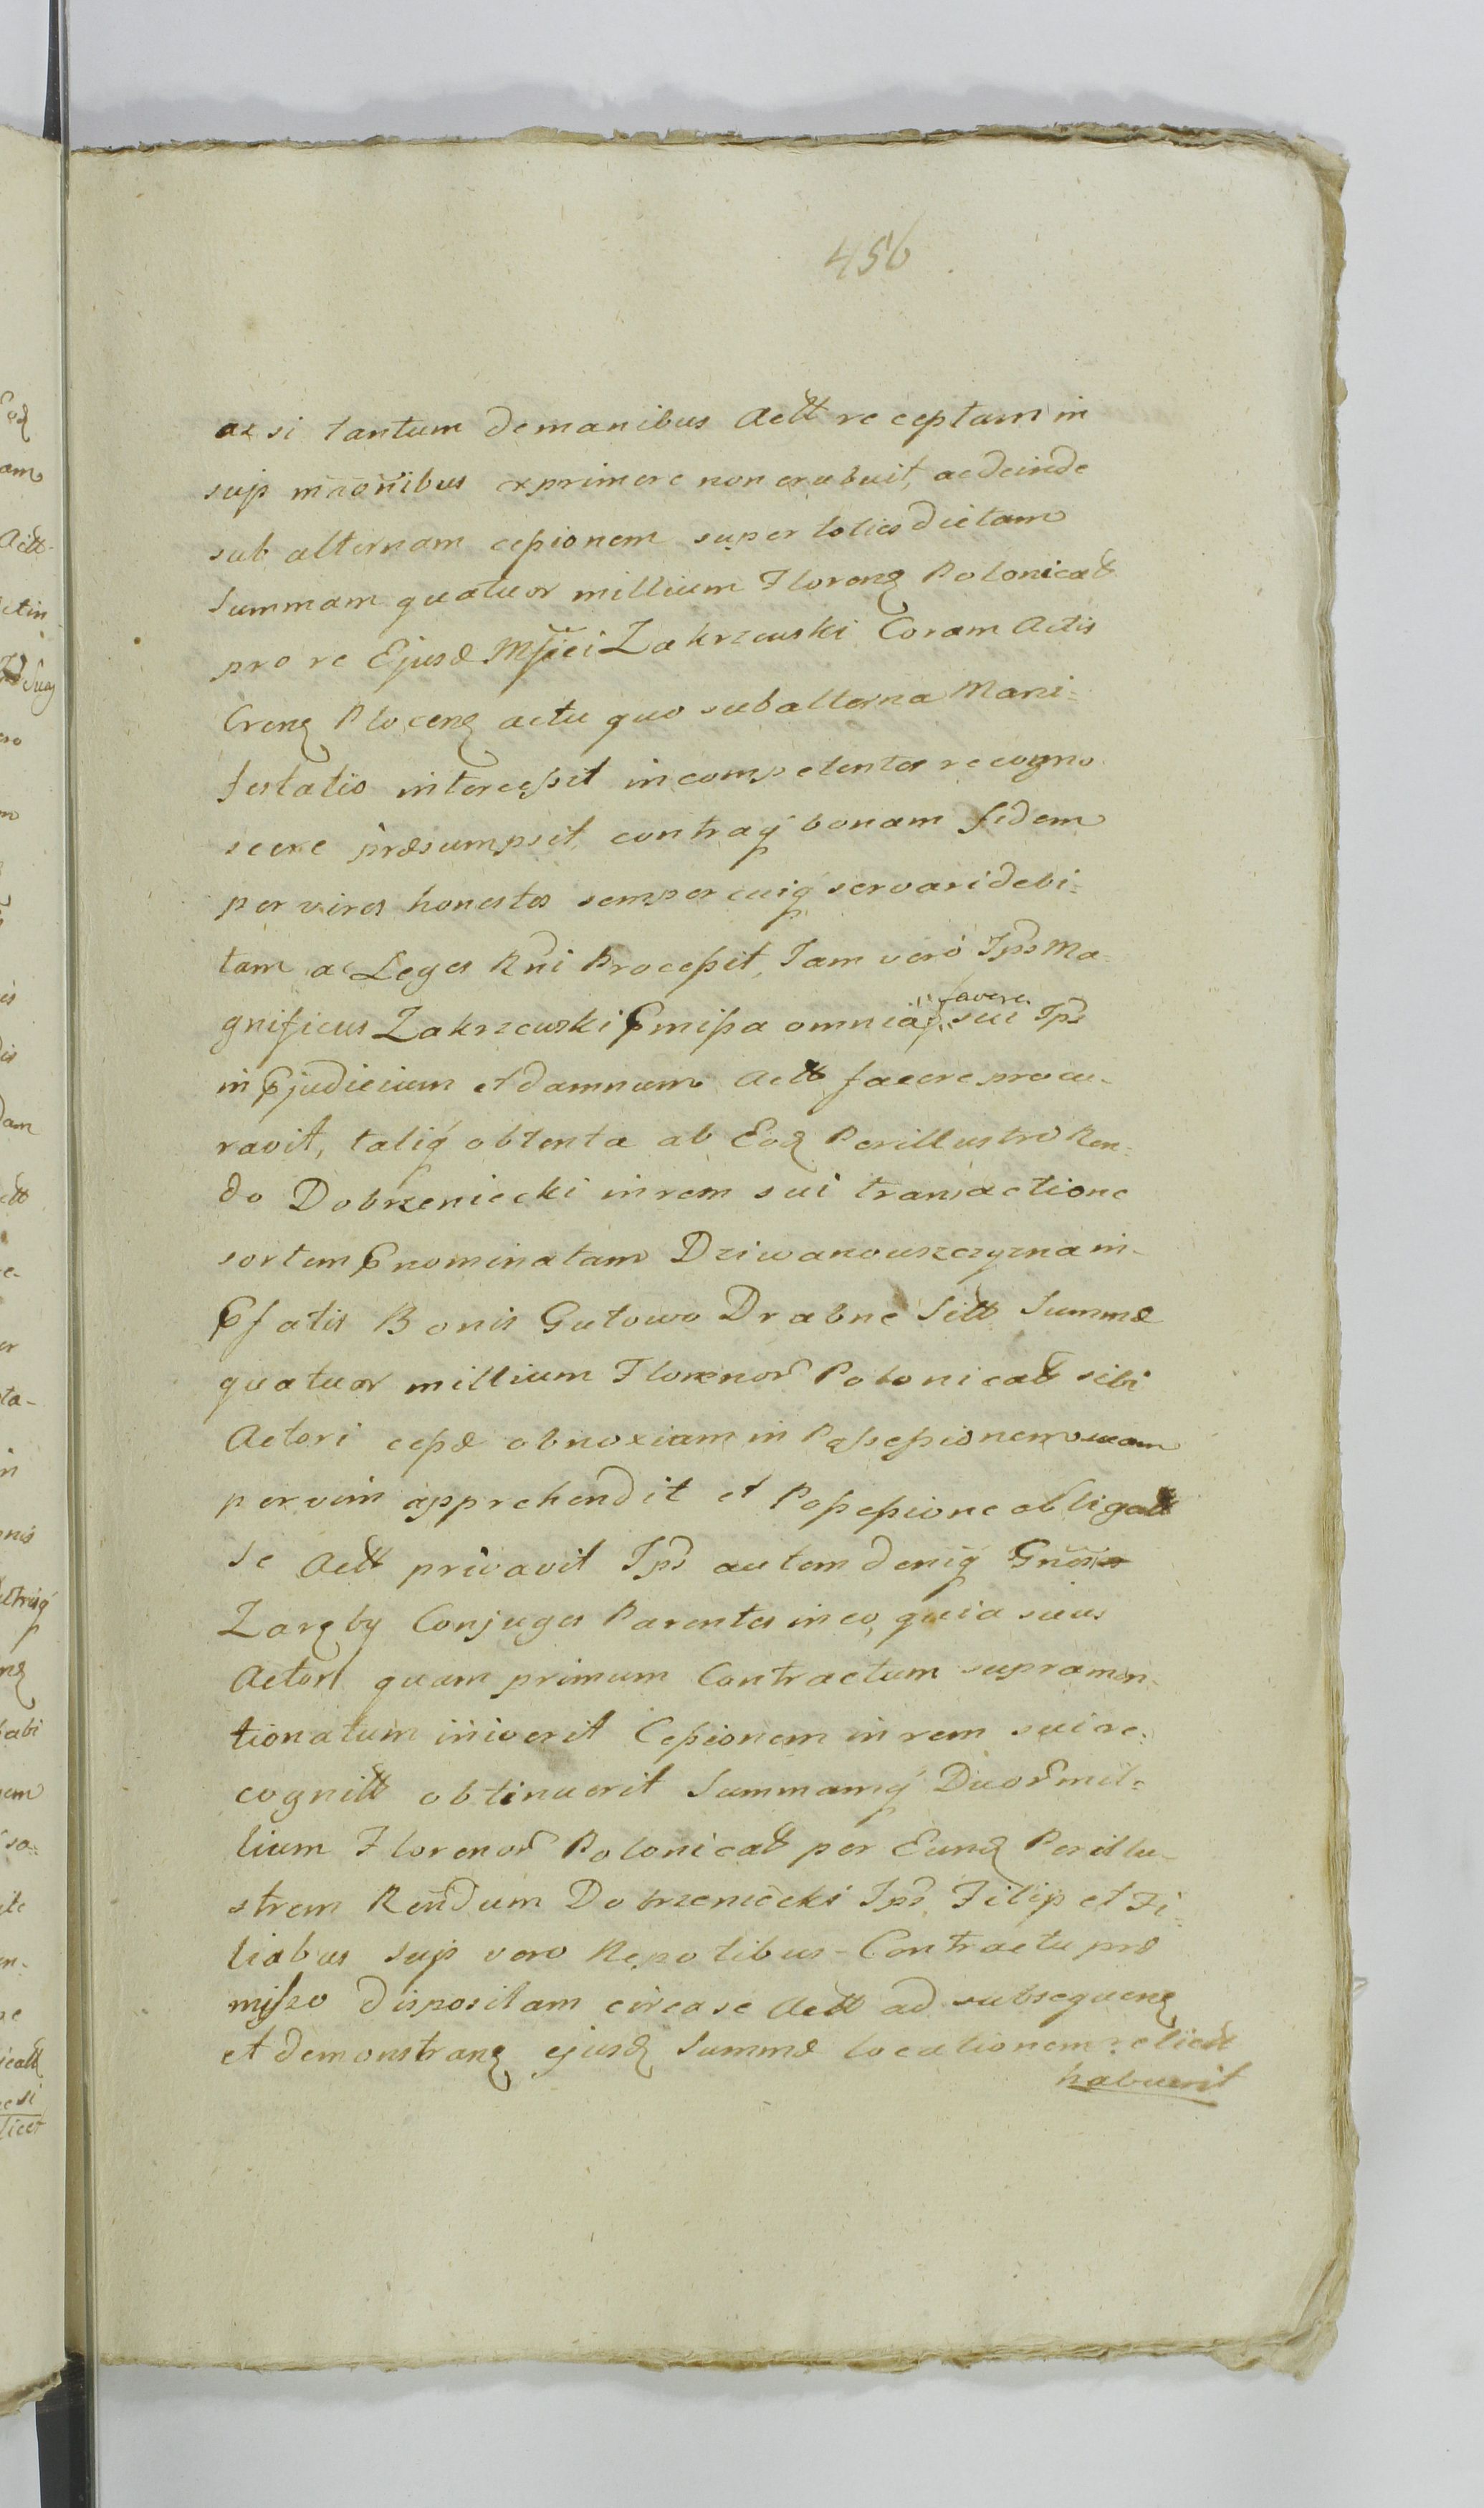 456
ac si tantum de manibus Actt receptam in
sup mãonibus exprimere non erubuit, ac deinde
sub alternam cessionem super toties dictam
Summam quatuor millium Florenꝫ Polonicalꝫ
pro re Ejusd Mfici Zakrzewski Coram Actis
Crenꝫ Plocenꝫ actu quo subalterna Mani-
festatio intercessit incompetenter recogno
scere præsumpsit, contraq bonam fidem
per viros honestos semper cuiq servari debi-
tam ac Leges Rni Processit, Jam vero Ips Ma-
gnificus Zakrzewski Pmissa omnia favere sui Ips
in Pjudicium et damnum Actt facere procu-
ravit, taliq obtenta ab Eodꝫ Perillustro Ren-
do Dobrzeniecki in rem sui transactione
sortem Pnominatam Dziwanowszczyzna in
Pfatis Bonis Gutowo Drabne Sitt Summæ
quatuor millium Florenor Polonicalꝫ sibi
Actori cessæ obnoxiam in Possessionem suam
per vim apprehendit et Possessione obligatt
se Actt privavit Ips autem deniq Gnos
Zaręby Conjuges Parentes in eo, quia suus
Actor quam primum Contractum supramen-
tionatum iniverit Cessionem in rem sui re-
cognitt obtinuerit Summamq Duor mil-
lium Florenor Polonicalꝫ per Eundꝫ Perillu-
strem Rendum Dobrzeniecki Ips Filip et Fi-
liabus sup vero Nepotibus Contractu præ
misso dispositam circa se Actt ad subsequenꝫ
et demonstranꝫ ejusdꝫ Summæ locationem relictt
habuerit